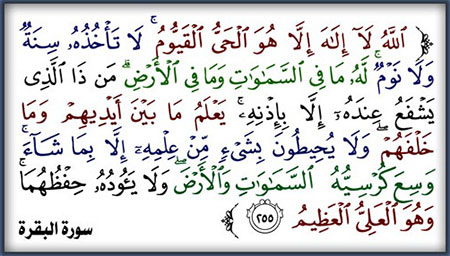 ٱللَّهُ لَآ إِلَٰهَ إِلَّا هُوَ ٱلْحَىُّ ٱلْقَيُّومُ ۚ لَا تَأْخُذُهُۥ سِنَةٌ
وَلَا نَوْمٌ ۚ لَّهُۥ مَا فِى ٱلسَّمَٰوَٰتِ وَمَا فِى ٱلْأَرْضِ ۗ مَن ذَا ٱلَّذِى
يَشْفَعُ عِندَهُۥٓ إِلَّا بِإِذْنِهِۦ ۚ يَعْلَمُ مَا بَيْنَ أَيْدِيهِمْ وَمَا
خَلْفَهُمْ ۖ وَلَا يُحِيطُونَ بِشَىْءٍ مِّنْ عِلْمِهِۦٓ إِلَّا بِمَا شَآءَ ۚ
وَسِعَ كُرْسِيُّهُ ٱلسَّمَٰوَٰتِ وَٱلْأَرْضَ ۖ وَلَا يَـُٔودُهُۥ حِفْظُهُمَا ۚ
وَهُوَ ٱلْعَلِىُّ ٱلْعَظِيمُ ٢٥٥ سورة البقرة